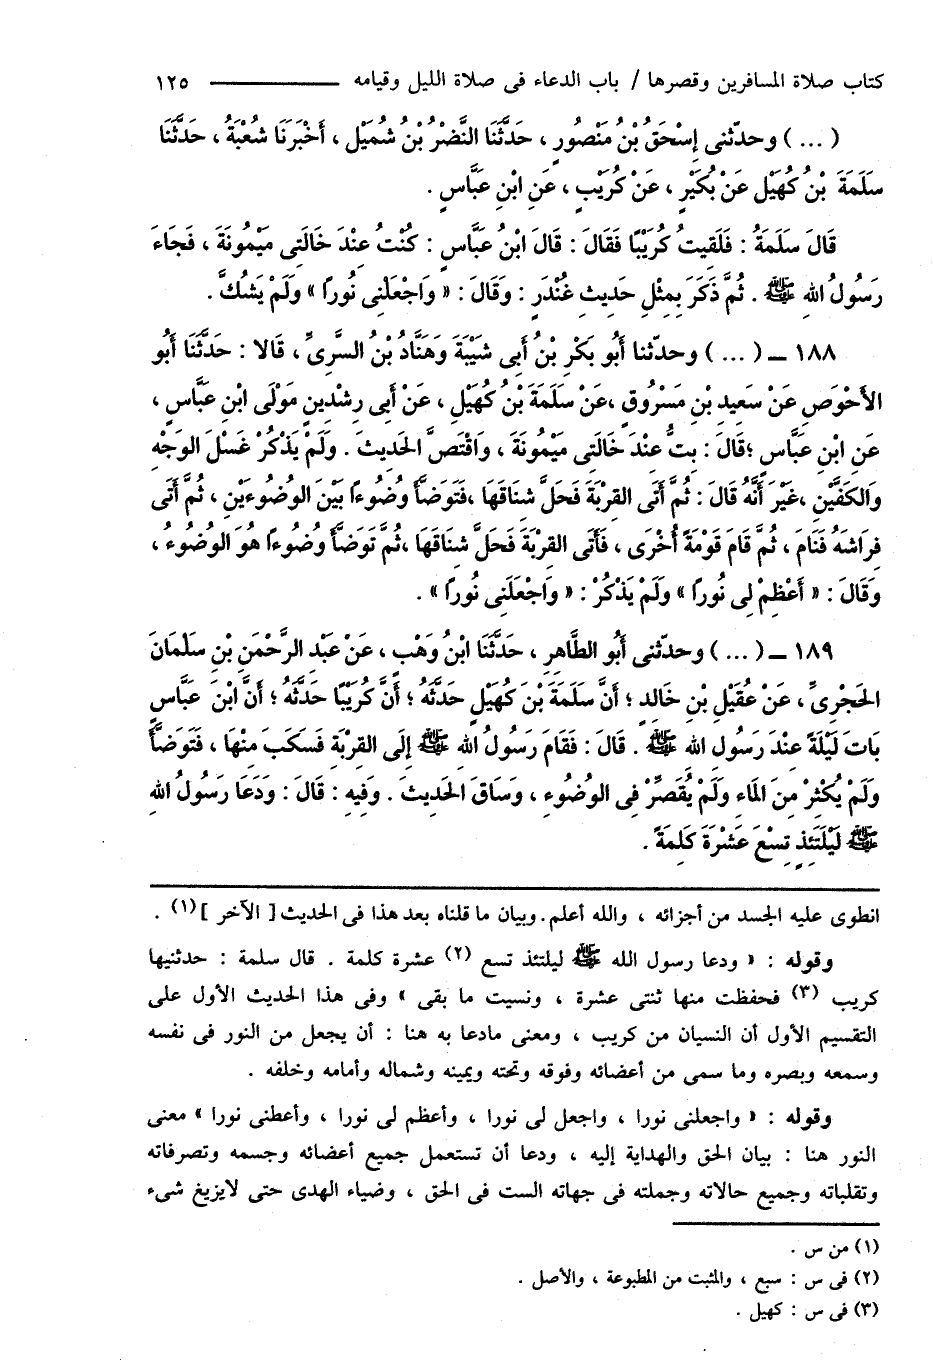 كتاب صلاة المسافرين وقصرها / باب الدعاء فى صلاة الليل وقيامه ــــــــــــــ ١٢٥
( ... ) وحدّثنى إِسْحَقُ بْنُ مَنْصُورٍ ، حَدَّثَنَا النَّضْرُ بْنُ شُمَيْلٍ ، أَخْبَرَنَا شُعْبَةُ ، حَدَّثَنَا
سَلَمَةَ بْنُ كُهَيْلٍ عَنْ بُكَيْرٍ ، عَنْ كُرَيْبٍ ، عَنِ ابْنِ عَبَّاسٍ .
قَالَ سَلَمَةُ : فَلَقِيتُ كُرَيْبًا فَقَالَ : قَالَ ابْنُ عَبَّاسٍ : كُنْتُ عِنْدَ خَالَتِى مَيْمُونَةَ ، فَجَاءَ
رَسُولُ اللهِ ﷺ . ثُمَّ ذَكَرَ بِمِثْلِ حَدِيثِ غُنْدَرٍ : وَقَالَ : « وَاجْعَلْنِى نُورًا » وَلَمْ يَشُكَّ .
١٨٨ ــ ( ... ) وحدّثنا أَبُو بَكْرِ بْنُ أَبِى شَيْبَةَ وَهَنَّادُ بْنُ السَّرِىِّ ، قَالا : حَدَّثَنَا أَبُو
الأَحْوَصِ عَنْ سَعِيدِ بْنِ مَسْرُوقٍ ،عَنْ سَلَمَةَ بْنِ كُهَيْلٍ ، عَنْ أَبِى رِشْدِينٍ مَوْلَى ابْنِ عَبَّاسٍ ،
عَنِ ابْنِ عَبَّاسٍ ؛قَالَ : بِتُّ عِنْدَ خَالَتِى مَيْمُونَةَ ، وَاقْتَصَّ الحَدِيثَ . وَلَمْ يَذْكُرْ غَسْلَ الوَجْهِ
وَالكَفَّيْنِ ،غَيْرَ أَنَّهُ قَالَ : ثُمَّ أَتَى القِرْبَةَ فَحَلَّ شِنَاقَهَا ،فَتَوَضَّأَ وُضُوءًا بَيْنَ الوُضُوءَيْنِ ، ثُمَّ أَتَى
فِرَاشَهُ فَنَامَ ، ثُمَّ قَامَ قَوْمَةً أُخْرَى ، فَأَتَى القِرْبَةَ فَحَلَّ شِنَاقَهَا ،ثُمَّ تَوَضَّأَ وُضُوءًا هُوَ الوُضُوءُ ،
وَقَالَ : « أَعْظِمْ لِى نُورًا » وَلَمْ يَذْكُرْ : « وَاجْعَلْنِى نُورًا » .
١٨٩ ــ ( ... ) وحدّثنى أَبُو الطَّاهِرِ ، حَدَّثَنَا ابْنُ وَهْبٍ ، عَنْ عَبْدِ الرَّحْمَنِ بْنِ سَلْمَانَ
الحَجْرِىِّ ، عَنْ عُقَيْلِ بْنِ خَالِدٍ ؛ أَنَّ سَلَمَةَ بْنَ كُهَيْلٍ حَدَّثَهُ ؛ أَنَّ كُرَيْبًا حَدَّثَهُ ؛ أَنَّ ابْنَ عَبَّاسٍ
بَاتَ لَيْلَةً عِنْدَ رَسُولِ اللهِ ﷺ . قَالَ : فَقَامَ رَسُولُ اللهِ ﷺ إِلَى القِرْبَةِ فَسَكَبَ مِنْهَا ، فَتَوَضَّأَ
وَلَمْ يُكْثِرْ مِنَ المَاءِ وَلَمْ يُقَصِّرْ فِى الوُضُوءِ ، وَسَاقَ الحَدِيثَ . وَفِيهِ : قَالَ : وَدَعَا رَسُولُ اللهِ
ﷺ لَيْلَتَئِذٍ تِسْعَ عَشْرَةَ كَلِمَةً .
انطوى عليه الجسد من أجزائه ، والله أعلم. وبيان ما قلناه بعد هذا فى الحديث [ الآخر ] (١) .
وقوله : « ودعا رسول الله ﷺ ليلتئذ تسع (٢) عشرة كلمة . قال سلمة : حدثنيها
كريب (٣) فحفظت منها ثنتى عشرة ، ونسيت ما بقى » وفى هذا الحديث الأول على
التقسيم الأول أن النسيان من كريب ، ومعنى مادعا به هنا : أن يجعل من النور فى نفسه
وسمعه وبصره وما سمى من أعضائه وفوقه وتحته ويمينه وشماله وأمامه وخلفه .
وقوله : « واجعلنى نورا ، واجعل لى نورا ، وأعظم لى نورا ، وأعطنى نورا » معنى
النور هنا : بيان الحق والهداية إليه ، ودعا أن تستعمل جميع أعضائه وجسمه وتصرفاته
وتقلباته وجميع حالاته وجملته فى جهاته الست فى الحق ، وضياء الهدى حتى لايزيغ شىء
(١) من س .
(٢) فى س : سبع ، والمثبت من المطبوعة ، والأصل .
(٣) فى س : كهيل .